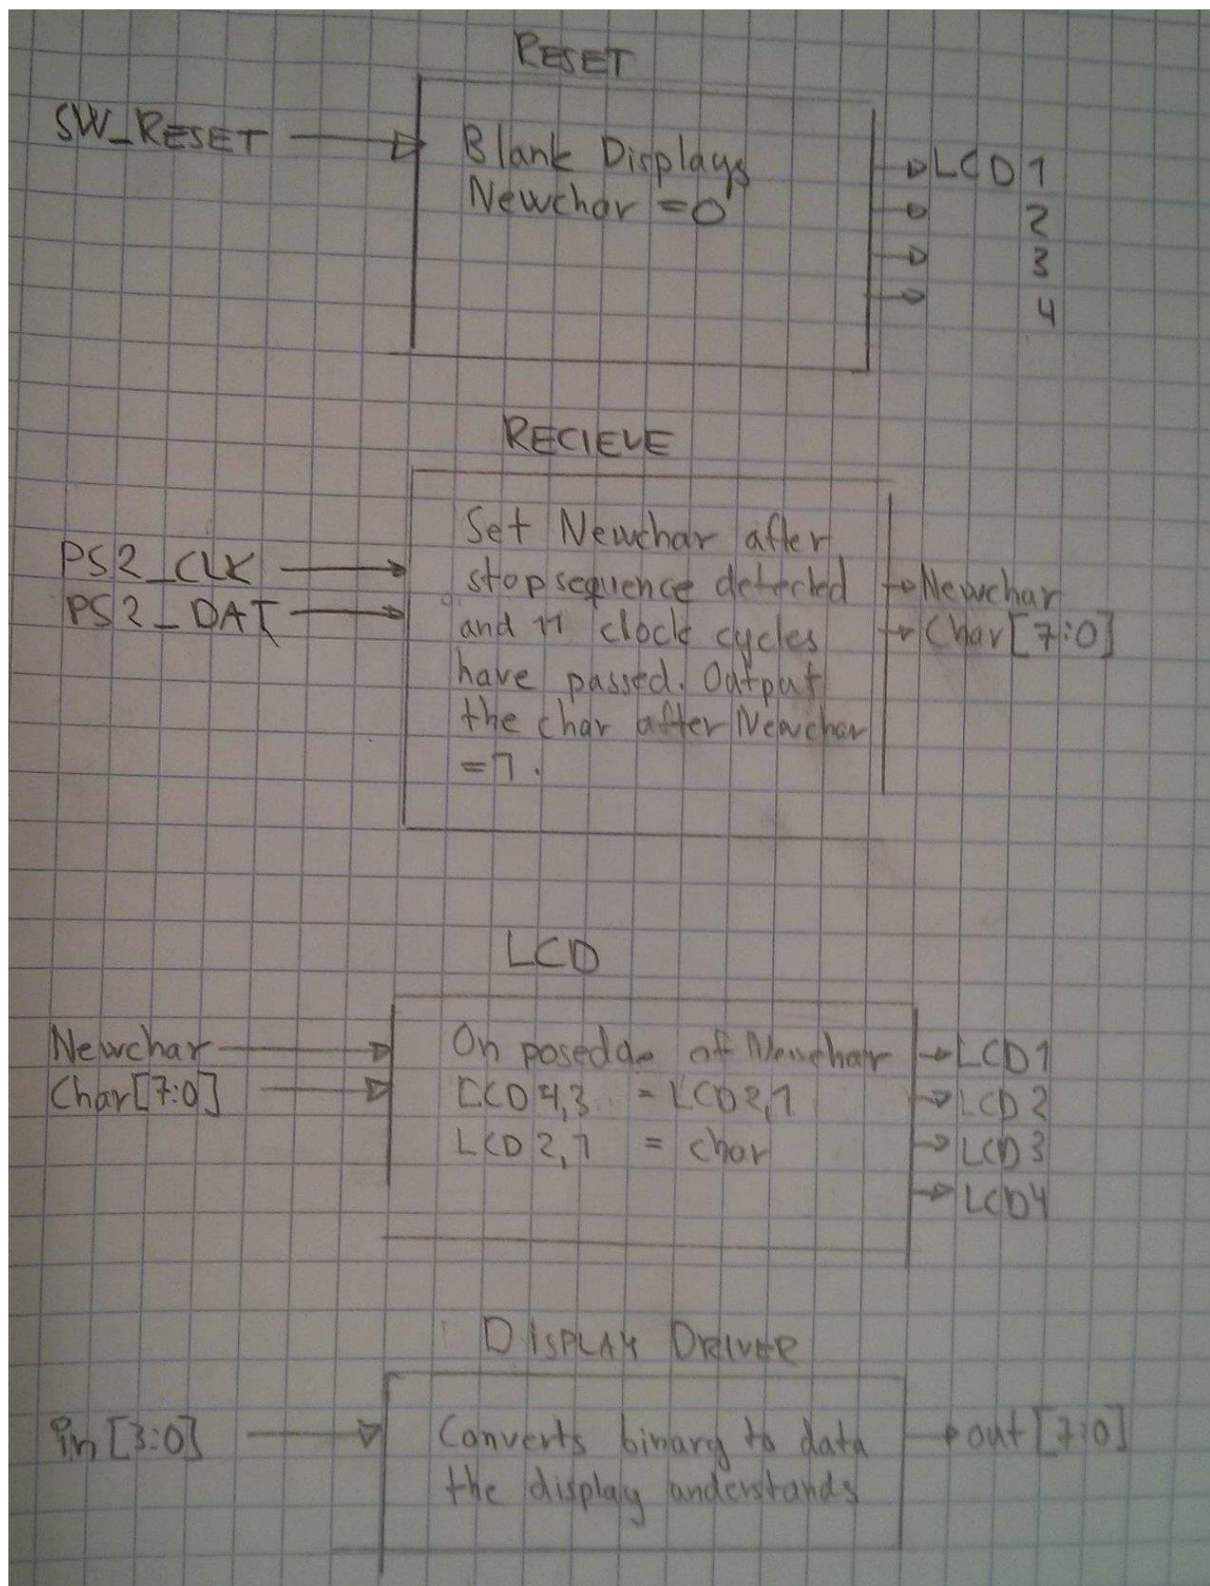 RESET
SW_RESET
Blank Displays
Newchar = 0
LCD 1
2
3
4
RECIEVE
PS2_CLK
PS2_DAT
Set Newchar after
stop sequence detected
and 11 clock cycles
have passed. Output
the char after Newchar
= 1.
Newchar
Char[7:0]
LCD
Newchar
Char[7:0]
On posedde of Newchar
LCD 4,3 = LCD 2,1
LCD 2,1 = char
LCD1
LCD2
LCD3
LCD4
DISPLAY DRIVER
in [3:0]
Converts binary to data
the display understands
out [7:0]